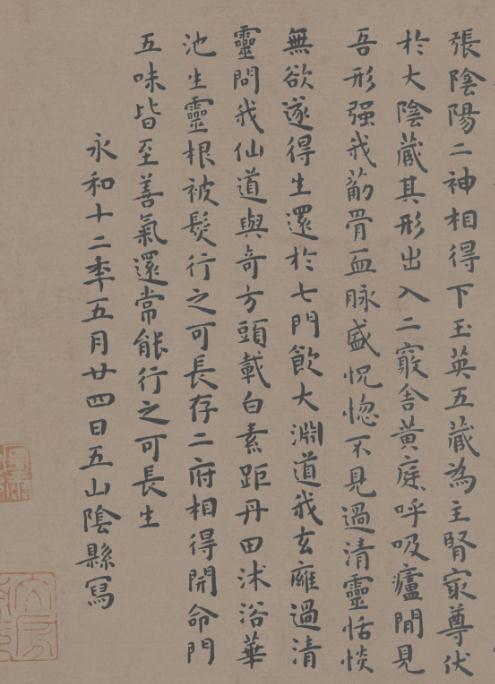 張陰陽二神相得下玉英五藏為主腎㝡尊伏
於大陰藏其形出入二竅舍黃庭呼吸廬間見
吾形强我筋骨血脉盛怳惚不見過清靈恬惔
無欲遂得生還於七門飲大淵道我玄廱過清
靈問我仙道與奇方頭載白素距丹田沐浴華
池生靈根被髮行之可長存二府相得開命門
五味皆至善氣還常能行之可長生
永和十二年五月廿四日五山陰縣寫